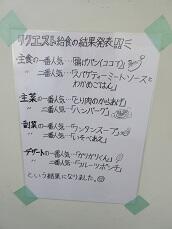 リクエスト給食の結果発表!!
主食の一番人気…「揚げパン(ココア)」
〃 二番人気…「スパゲティーミートソースと
わかめごはん」
主菜の一番人気…「とり肉のからあげ」
〃 二番人気…「ハンバーグ」
副菜の一番人気…「ワンタンスープ」
〃 二番人気…「いそべあえ」
デザートの一番人気…「ガリガリくん」
〃 二番人気…「フルーツポンチ」
という結果になりました。